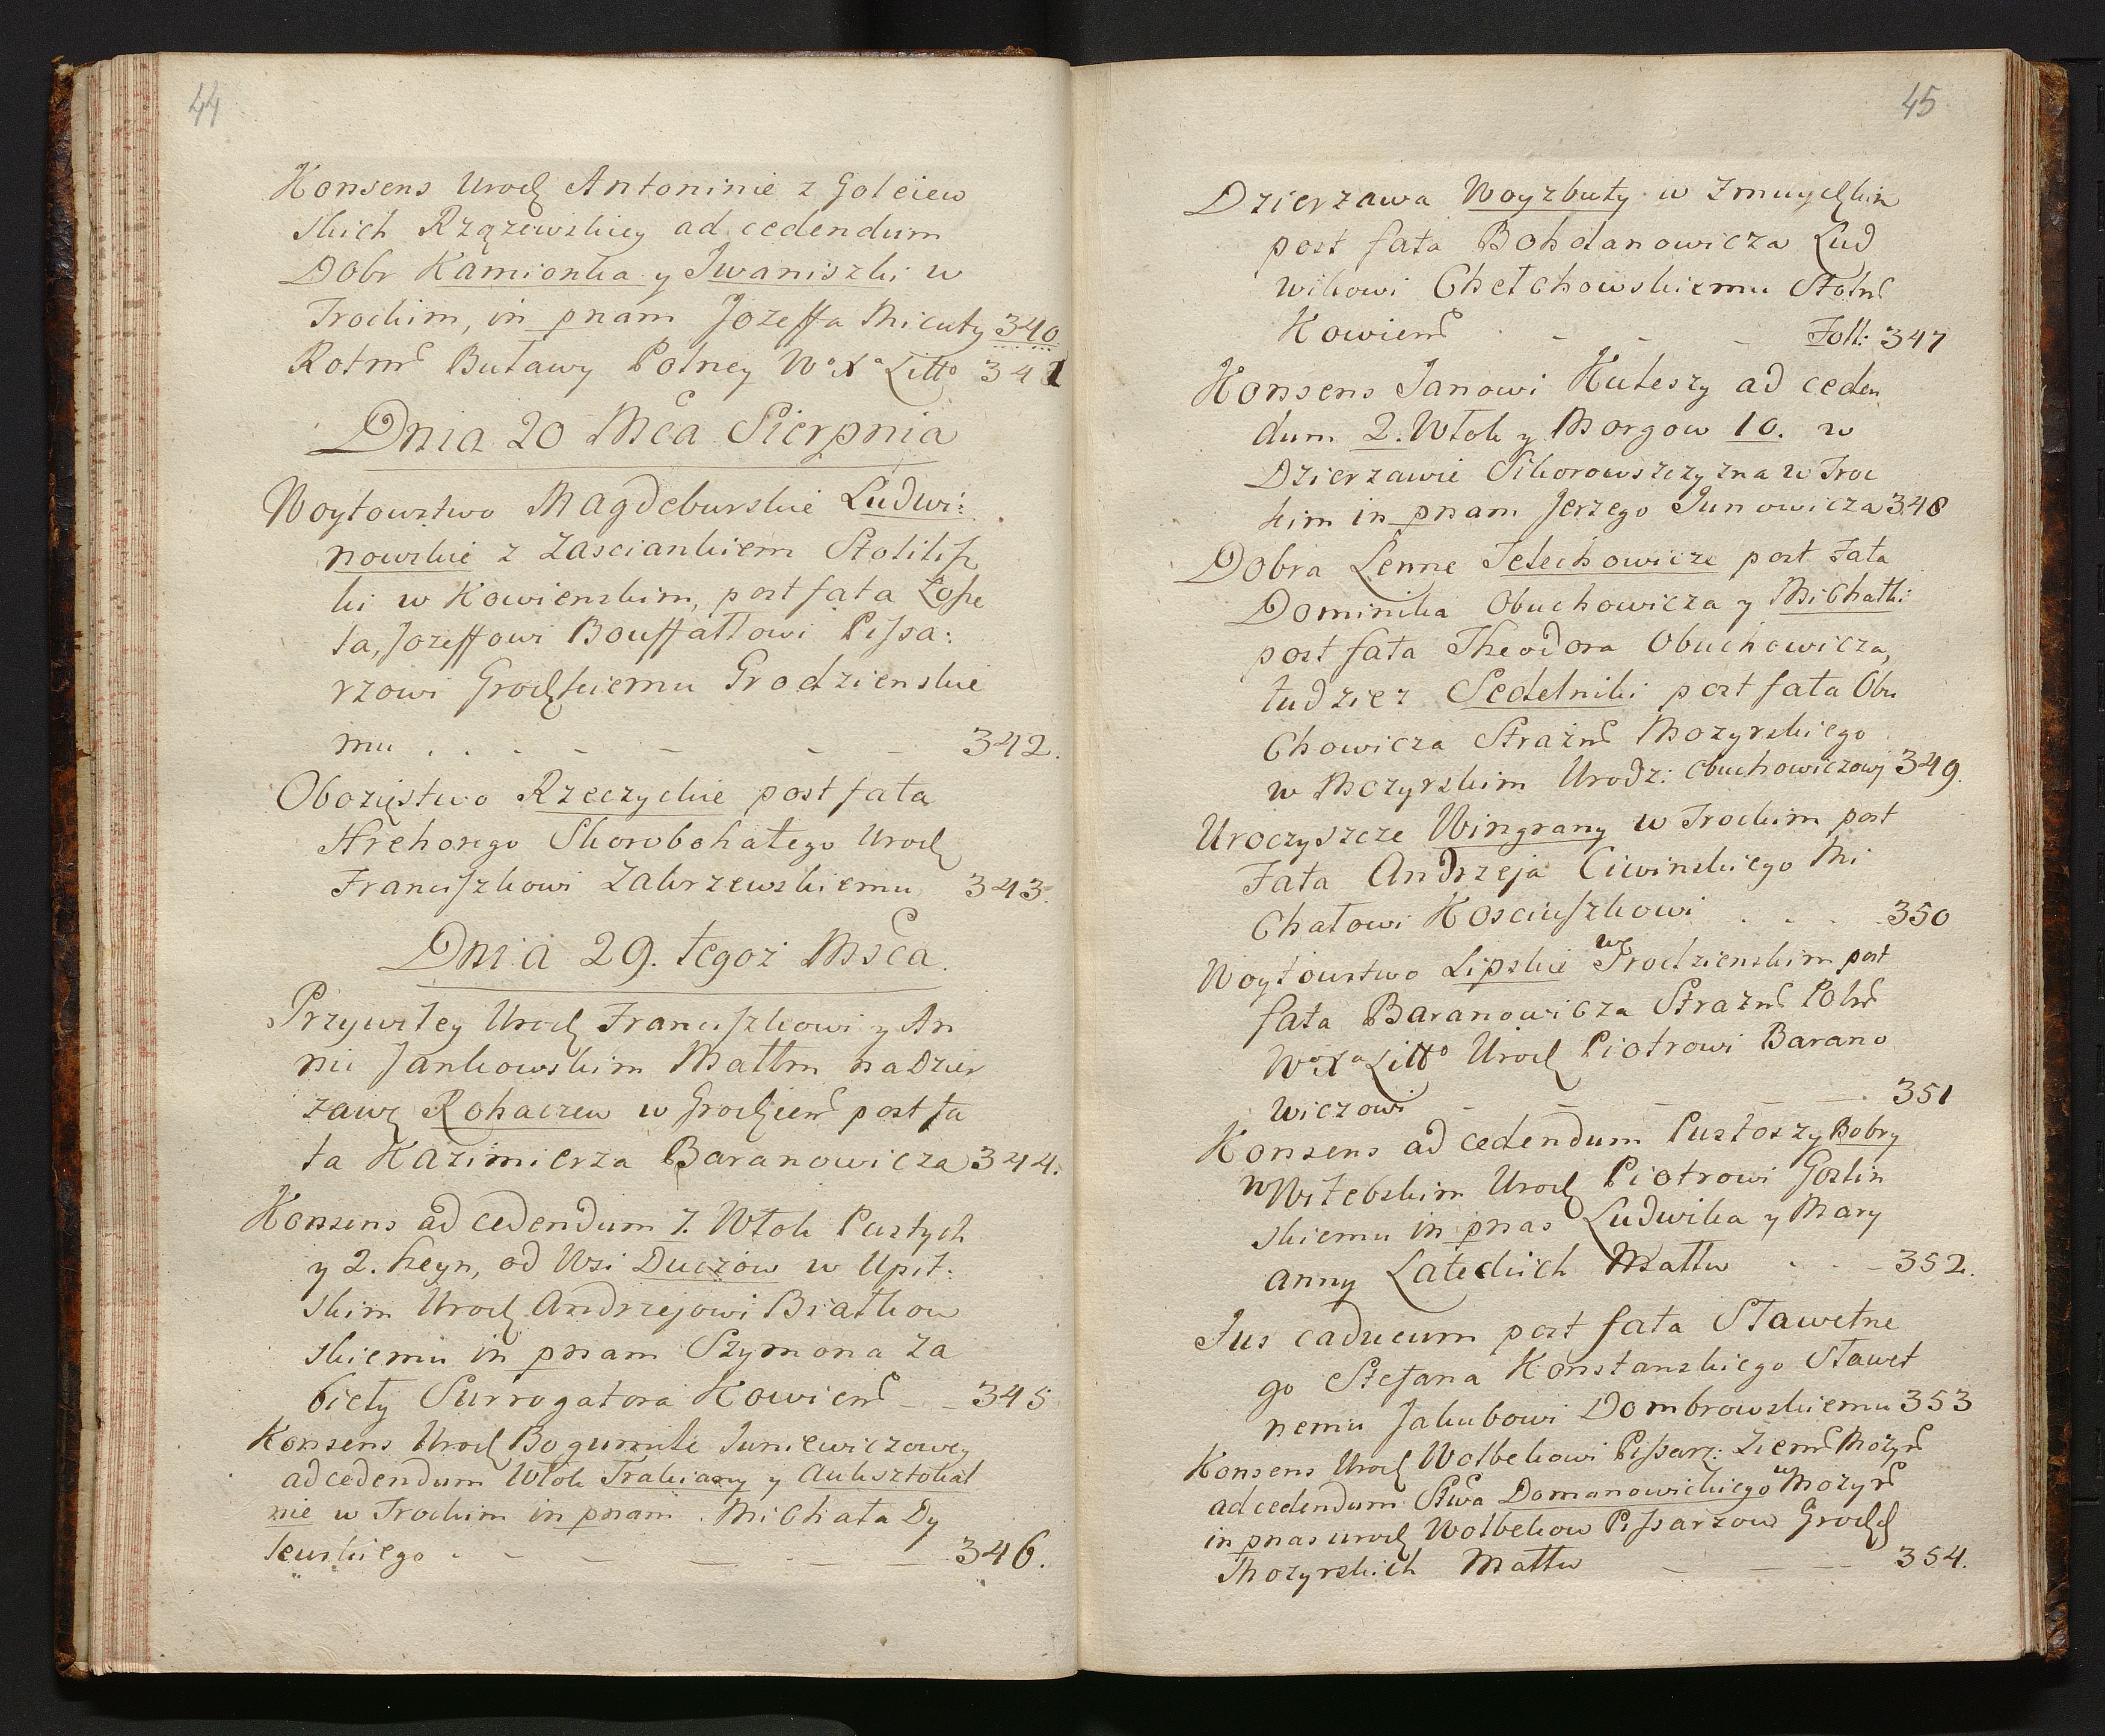 44
Konsens Urodz Antoninie z Goleiew
skich Rzązewskiey ad cedendum
Dobr Kamionka y Iwaniszki w
Trockim, in pnam Jozeffa Micuty 340
Rotmć Buławy Polney Wo Xa Litto 341
Dnia 20 Mca Sierpnia
Woytowstwo Magdeburskie Ludwi:
nowskie z Zasciankiem Stolilisz
ki w Kowienskim, post fata Losse
ta, Jozeffowi Bouffałłowi Pissa:
rzowi Grodzkiemu Grodzienskie
mu . . . - - - - 342.
Oboźęstwo Rzeczyckie post fata
Hrehorego Skorobohatego Urodz
Franciszkowi Zakrzewskiemu 343.
Dnia 29. tegoż Msca.
Przywiley Urodz Franciszkowi y An
nie Jankowskim Małłm na Dzier
zawę Rohaczew w Grodzienć post fa
ta Kazimierza Baranowicza 344.
Konsens ad cedendum 7. Włok Pustych
y 2. Reyn, od Wsi Duciow w Upit:
skim Urodz Andrzejowi Białkow
skiemu in pnam Szymona Za
biely Surrogatora Kowienć - - 345
Konsens Urodz Bogumile Juniewiczowey
ad cedendum Włok Trakiany y Auksztokal
nie w Trockim in pnam Michała Dy
lewskiego - - - - - - 346.
45
Dzierzawa Woyzbuty w Zmuydzkim
post fata Bohdanowicza Lud
wikowi Chełchowskiemu Stolnć
Kowienć - - - Foll: 347
Konsens Janowi Kuleszy ad ceden
dum 2. Włok y Morgow 10. w
Dzierzawie Sikorowszczyzna w Troc
kim in pnam Jerzego Junowicza 348
Dobra Lenne Telechowicze post Fata
Dominika Obuchowicza y Michałki
post fata Theodora Obuchowicza,
tudzież Sedelniki post fata Obu
chowicza Strażnć Mozyrskiego
w Mozyrskim Urodz: Obuchowiczowi 349.
Uroczyszcze Wingrany w Trockim post
Fata Andrzeja Ciwinskiego Mi
chałowi Kosciuszkowi . . . 350
Woytowstwo Lipskie w Grodzienskim post
fata Baranowicza Strażnć Polnć
Wo Xa Litto Urodz Piotrowi Barano
wiczowi - - - - - 351
Konsens ad cedendum Pustoszy Bobry
w Witebskim Urodz Piotrowi Goslin
skiemu in pnas Ludwika y Mary
anny Lateckich Małłw . . - 352.
Jus caducum post fata Sławetne
go Stefana Konstanskiego Sławet
nemu Jakubowi Dombrowskiemu 353
Konsens Urodz Wolbekowi Pissarz: Ziemć Mozyrć
ad cedendum Stwa Domanowickiego w Mozyrć
in pnas urodz Wolbekow Pissarzow Grodzk
Mozyrskich Małłw - - - 354.